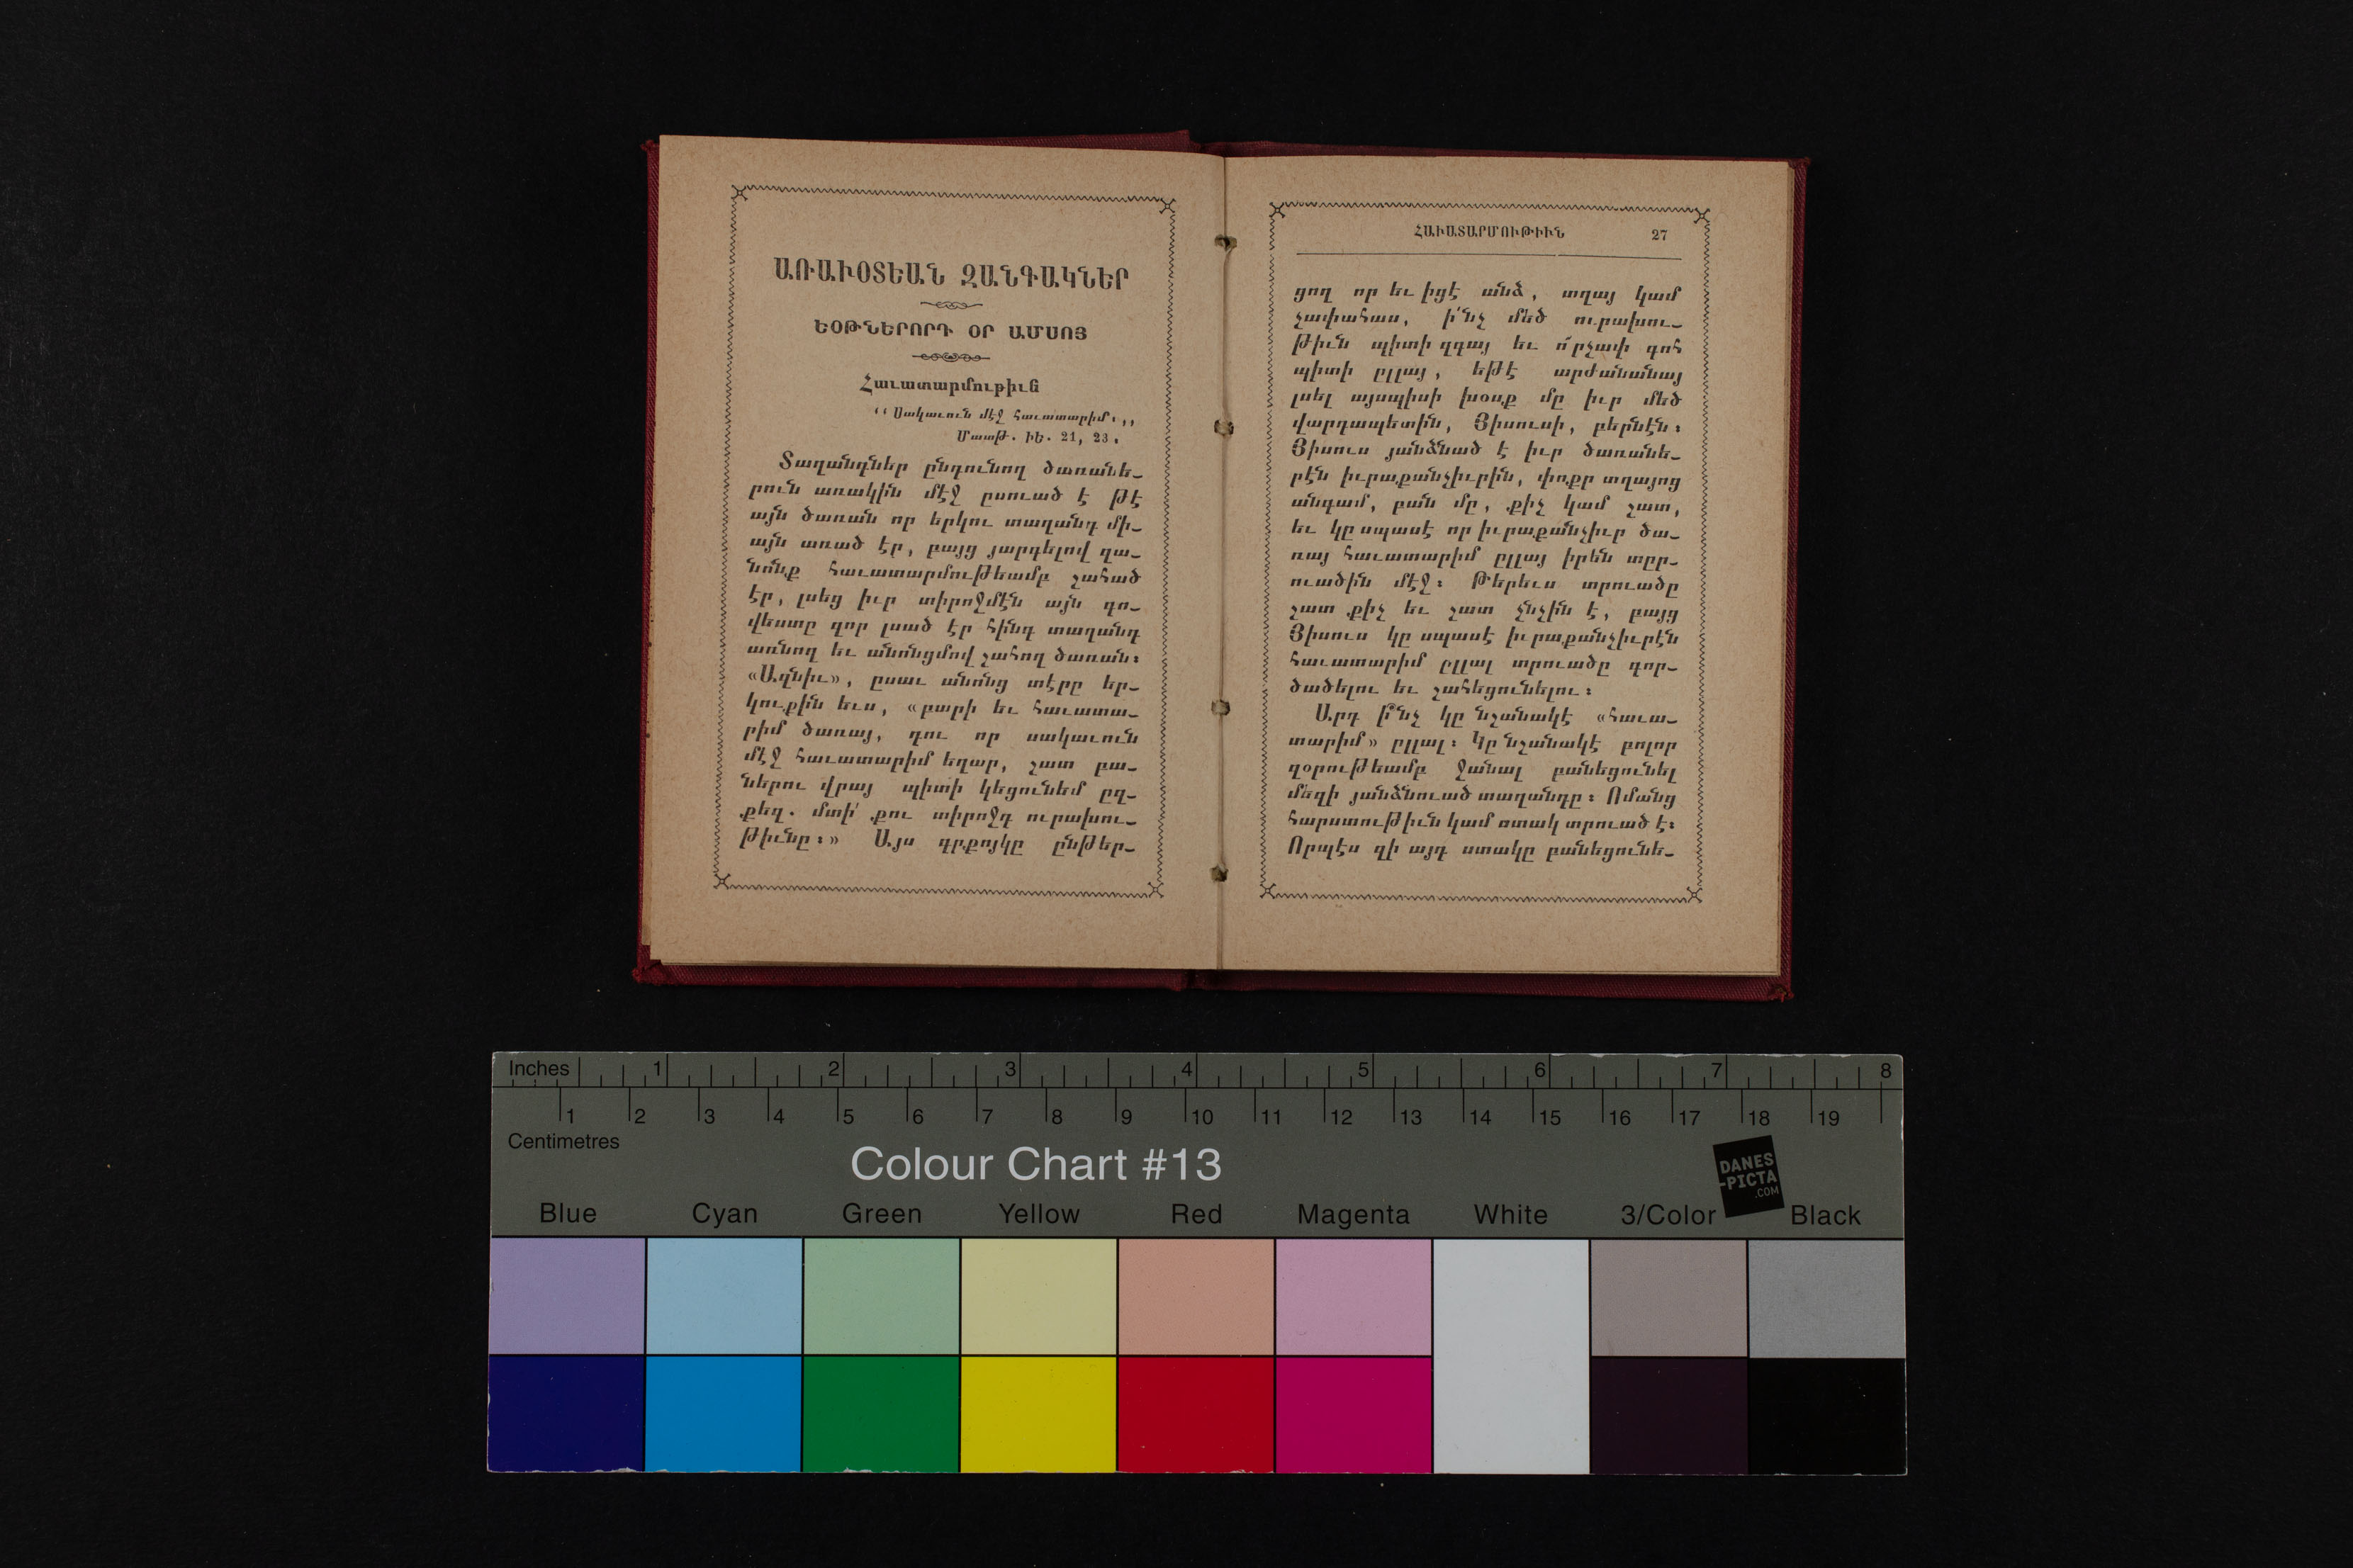 ԱՌԱՒՕՏԵԱՆ ԶԱՆԳԱԿՆԵՐ
ԵՕԹՆԵՐՈՐԴ ՕՐ ԱՄՍՈՅ
Հաւատարմութիւն
‘‘Սակաւուն մէջ հաւատարիմ.,,
Մատթ. ԻԵ. 21, 23.
Տաղանդներ ընդունող ծառանե-
րուն առակին մէջ ըսուած է թէ
այն ծառան որ երկու տաղանդ մի-
այն առած էր, բայց յարգելով զա-
նոնք հաւատարմութեամբ շահած
էր, լսեց իւր տիրոջմէն այն գո-
վեստը զոր լսած էր հինգ տաղանդ
առնող եւ անոնցմով շահող ծառան։
«Ազնիւ», ըսաւ անոնց տէրը եր-
կուքին եւս, «բարի եւ հաւատա-
րիմ ծառայ, դու որ սակաւուն
մէջ հաւատարիմ եղար, շատ բա-
ներու վրայ պիտի կեցունեմ ըզ-
քեզ. մտի՛ր քու տիրոջդ ուրախու-
թիւնը։» Այս գրքոյկը ընթեր-
ՀԱՒԱՏԱՐՄՈՒԹԻՒՆ 27
ցող որ եւ իցէ անձ, տղայ կամ
չափահաս, ի՛նչ մեծ ուրախու-
թիւն պիտի զգայ եւ ո՛րչափ գոհ
պիտի ըլլայ, եթէ արժանանայ
լսել այսպիսի խօսք մը իւր մեծ
վարդապետին, Յիսուսի, բերնէն։
Յիսուս յանձնած է իւր ծառանե-
րէն իւրաքանչիւրին, փոքր տղայոց
անգամ, բան մը, քիչ կամ շատ,
եւ կը սպասէ որ իւրաքանչիւր ծա-
ռայ հաւատարիմ ըլլայ իրեն տըր-
ուածին մէջ։ Թերեւս տրուածը
շատ քիչ եւ շատ չնչին է, բայց
Յիսուս կը սպասէ իւրաքանչիւրէն
հաւատարիմ ըլլալ տրուածը գոր-
ծածելու եւ շահեցունելու։
Արդ ի՞նչ կը նշանակէ «հաւա-
տարիմ» ըլլալ։ Կը նշանակէ բոլոր
զօրութեամբ ջանալ բանեցունել
մեզի յանձնուած տաղանդը։ Ոմանց
հարստութիւն կամ ստակ տրուած է։
Որպէս զի այդ ստակը բանեցունե-
Inches 1 2 3 4 5 6 7 8
1 2 3 4 5 6 7 8 9 10 11 12 13 14 15 16 17 18 19
Centimetres
Colour Chart #13
DANES
-PICTA
.COM
Blue Cyan Green Yellow Red Magenta White 3/Color Black